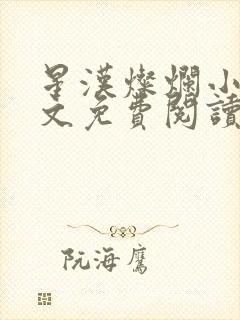 星漢燦爛小
文免費閱讀
阮海鷹